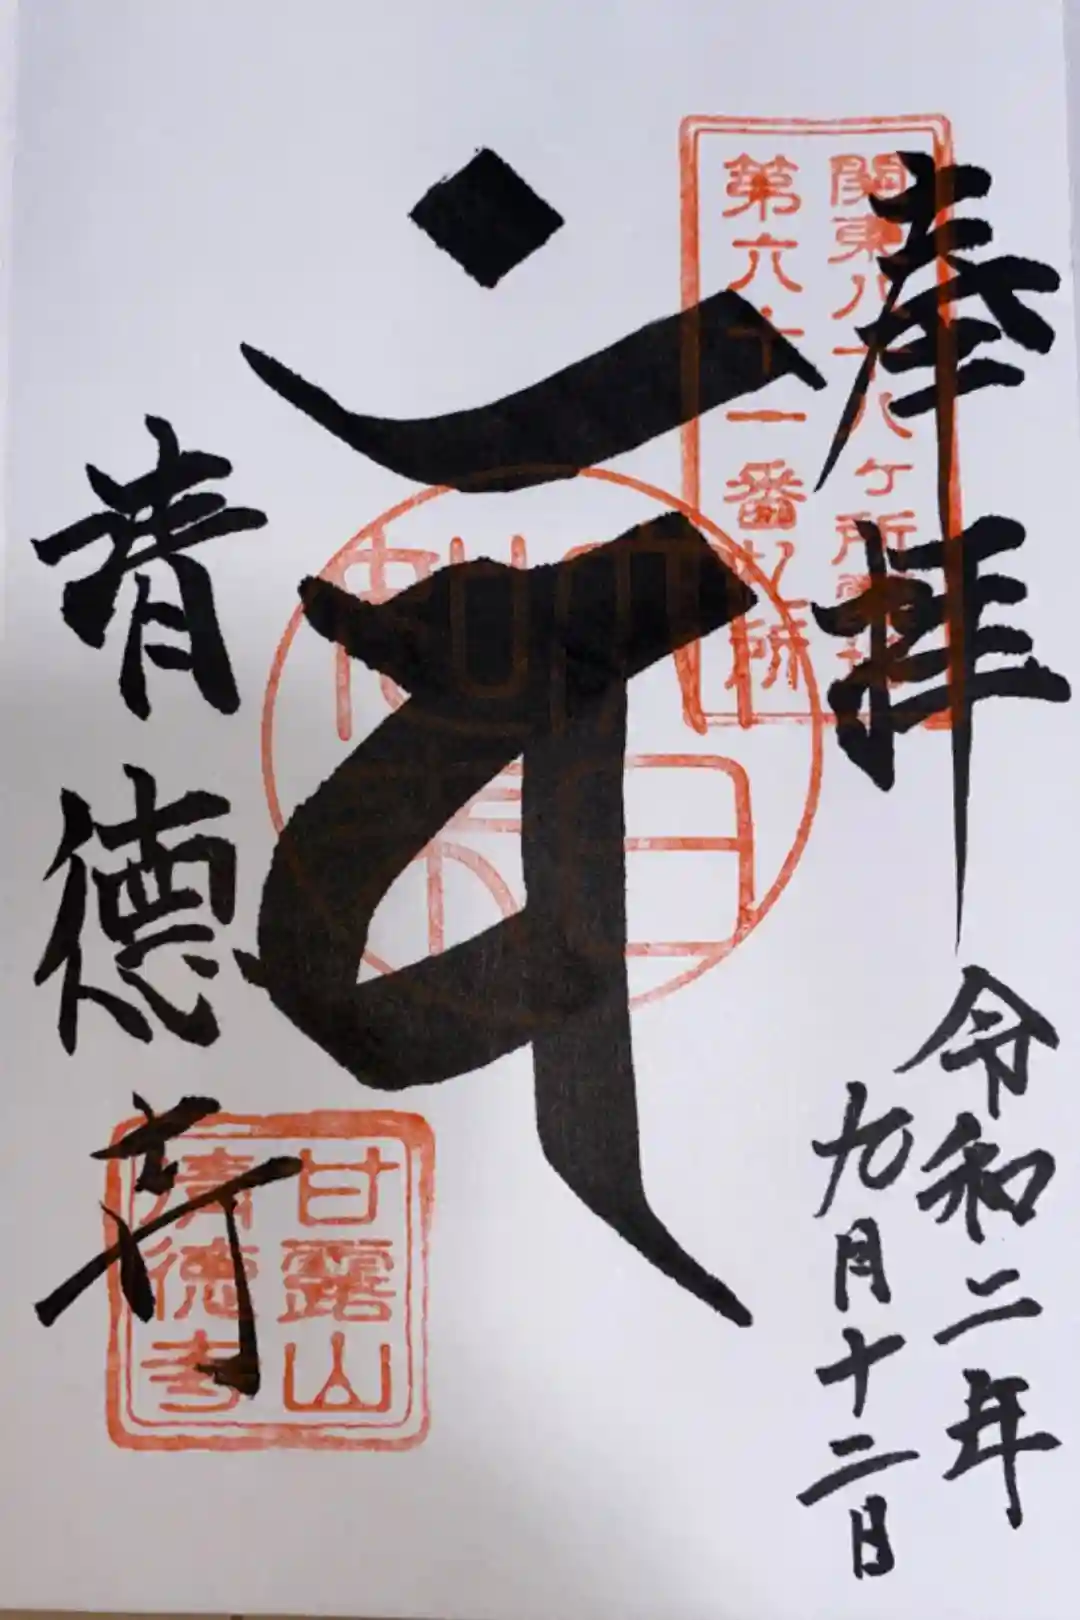 奉拝
令和二年
九月十二日
関東八十八ヶ所霊場
第六十一番札所
𑖪𑖽
大日
如来
清徳寺
甘露山
清徳寺